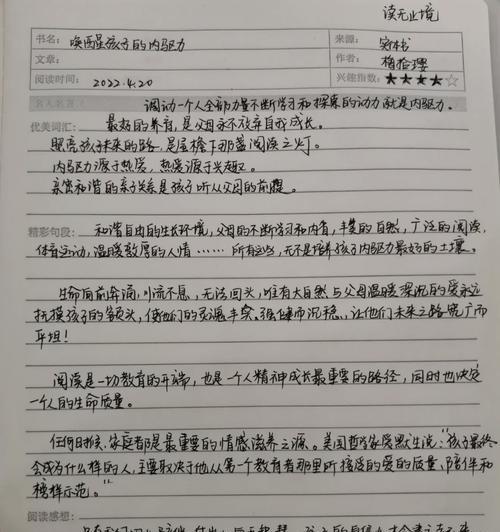 读无止境
书名：唤醒孩子的内驱力 来源：实体书
文章： 作者：
阅读时间：2022.4.20 兴趣指数：★★★★☆
名人名言： 调动一个人全部力量不断学习和探索的动力就是内驱力。
优美词汇： 最好的养育，是父母永不放弃自我成长。
照亮孩子未来的路，是屋檐下那盏阅读之灯。
内驱力源于热爱，热爱源于兴趣。
亲密和谐的亲子关系是孩子听从父母的前提。
精彩句段： 和谐自由的生长环境，父母的不断学习和内省，丰美的自然，广泛的阅读，
体育运动，温暖敦厚的人情……所有这些，无不是培养孩子内驱力最好的土壤。
生命向前奔涌，川流不息，无法回头，唯有大自然与父母温暖深沉的爱永远
抚摸孩子的额头，使他们的灵魂丰实、强健而沉稳，让他们未来之路宽广而
平坦！
阅读是一切教育的开端，也是一个人精神成长最重要的路径，同时也决定
一个人的生命质量。
任何时候，家庭都是最重要的情感滋养之源。美国哲学家爱默生说："孩子最终
会成为什么样的人，主要取决于他从第一个教育者那里所接受的爱的质量、陪伴和
榜样示范。"
阅读感想：